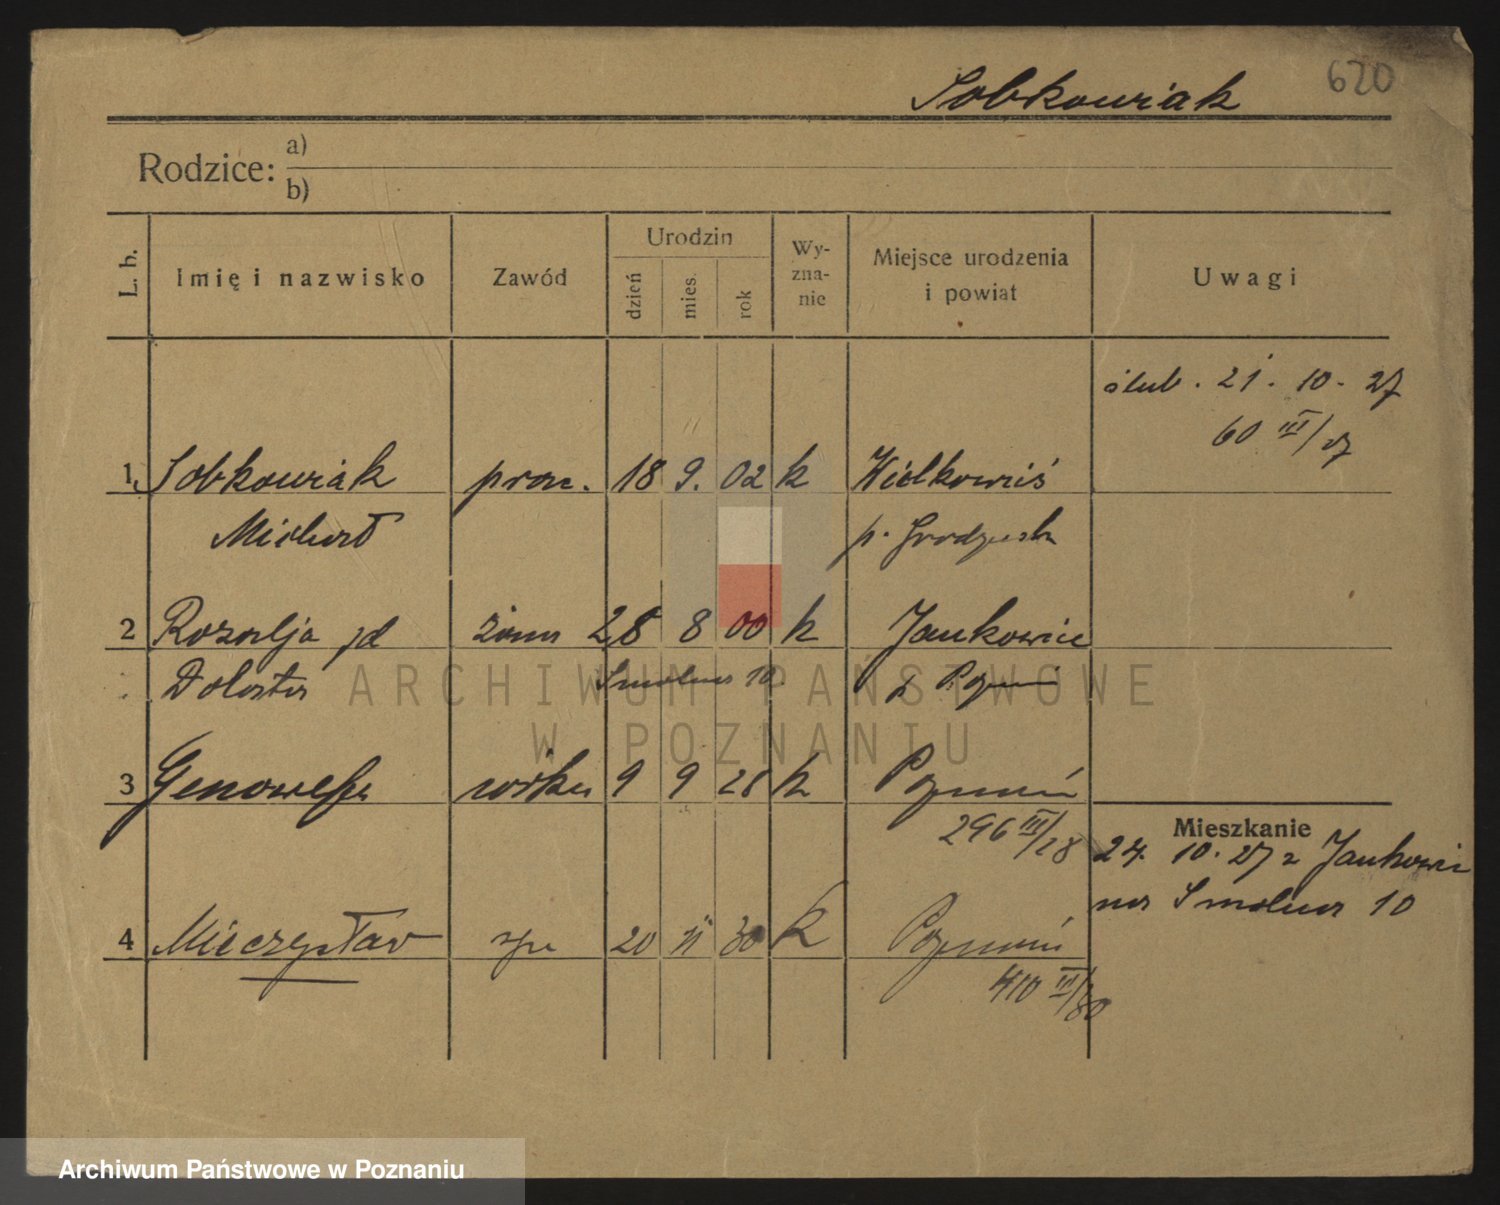 620
Sobkowiak
Rodzice: a)
b)
L. b.
Imię i nazwisko
Zawód
Urodzin
dzień mies. rok
Wy-
zna-
nie
Miejsce urodzenia
i powiat
Uwagi
ślub. 21. 10. 27
60 III/27
1. Sobkowiak prac. 18 9. 02 k Wielkowieś
Michał p. Grodzisk
2 Rozalja zd żona 28 8 00 k Jankowice
Dolata Smolna 10 p Pozn
3 Genowefa córka 9 9 28 k Poznań
296 III/28
Mieszkanie
24. 10. 27 z Jankowic
na Smolna 10
4 Mieczysław syn 20 11 30 k Poznań
410 III/30
ARCHIWUM PAŃSTWOWE
W POZNANIU
Archiwum Państwowe w Poznaniu